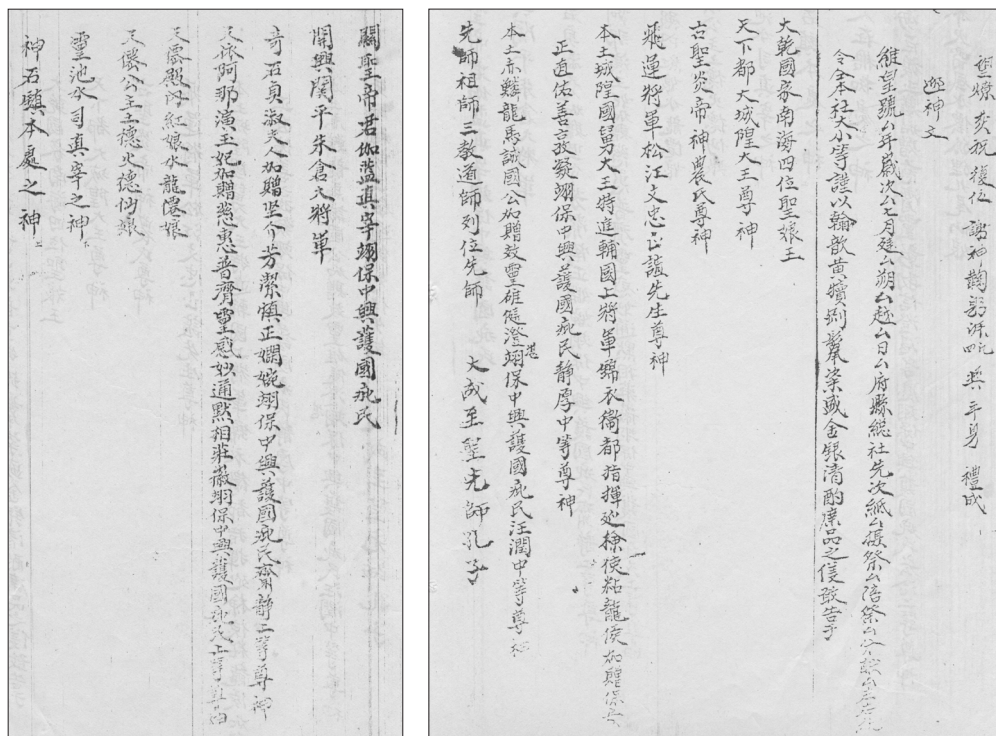 焚祝 復位 謝神鞠躬拜 興 平身 禮成
迎神文
維皇號厶年歲次厶月建厶朔厶越厶日厶府縣總社
令仝本社大小等謹以翰歆黃犢剛鬣粢盛金銀清酌庶品之儀敢告于
大乾國家南海四位聖娘王
天下都大城隍大王尊神
古聖炎帝神農氏尊神
飛運將軍松江文忠 先生尊神
本土城隍國舅大王特進輔國上將軍錦衣衛都指揮 使 加贈保安
正直佑善 翊保中興護國庇民靜厚中等尊神
本土赤麟龍馬誠國公加贈效靈雄健澄翊保中興護國庇民汪潤中等尊神
先師祖師三教道師列位先師 大成至聖先師孔子
關聖帝君伽藍真宰翊保中興護國庇民
關興關平朱倉大將軍
奇石貞淑夫人加贈 芳潔 正嫻婉翊保中興護國庇民齋靜上等尊神
天依阿那演玉妃加贈慈惠普濟靈感妙通默相莊徽翊保中興護國庇民上等尊神
天雲殿內紅娘水龍僊娘
天僊公主土德火德仙娘
靈池水司真宰之神
神石鎮本處之神